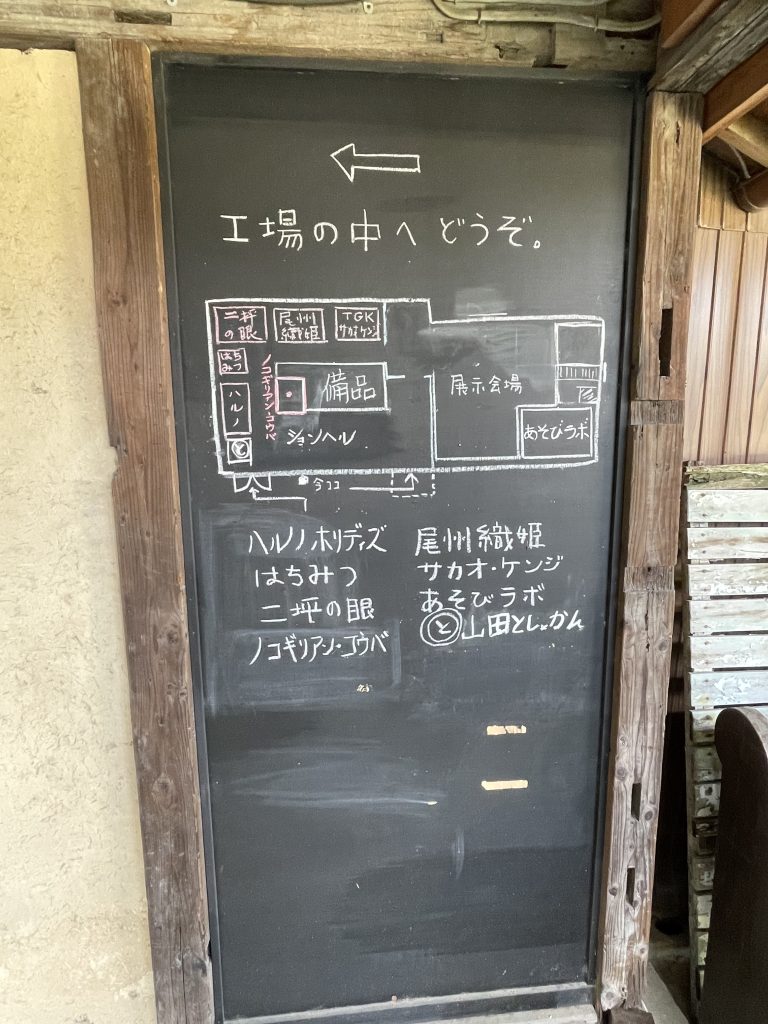 工場の中へどうぞ。
二坪
の眼
尾州
織姫
TGK
サカオ・ケンジ
はち
みつ
ハルノ
と
ノコギリアン・コウバ
備品
ションヘル
展示会場
あそびラボ
今ココ
ハルノホリディズ
はちみつ
二坪の眼
ノコギリアン・コウバ
尾州織姫
サカオ・ケンジ
あそびラボ
と山田としょかん